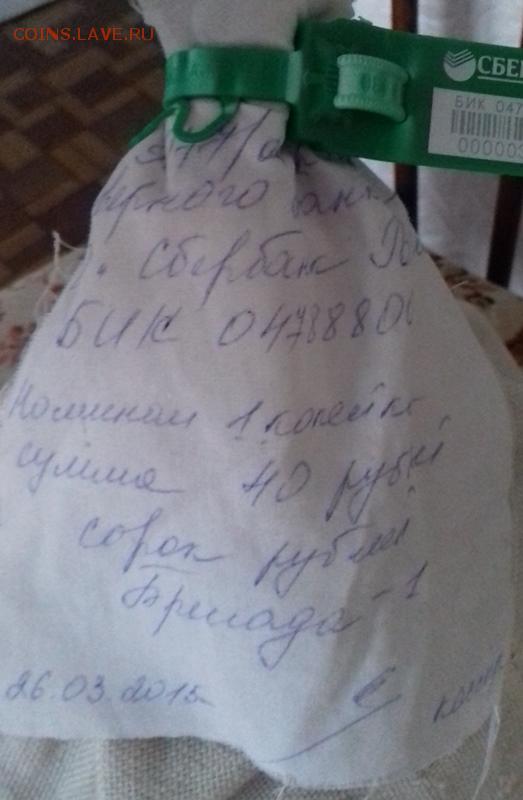 COINS.LAVE.РУ
СБЕР
БИК 047
00000
Сбербанк
БИК 0478880
Номинал 1 копейка
сумма 40 рублей
сорок рублей
Бригада-1
26.03.2015